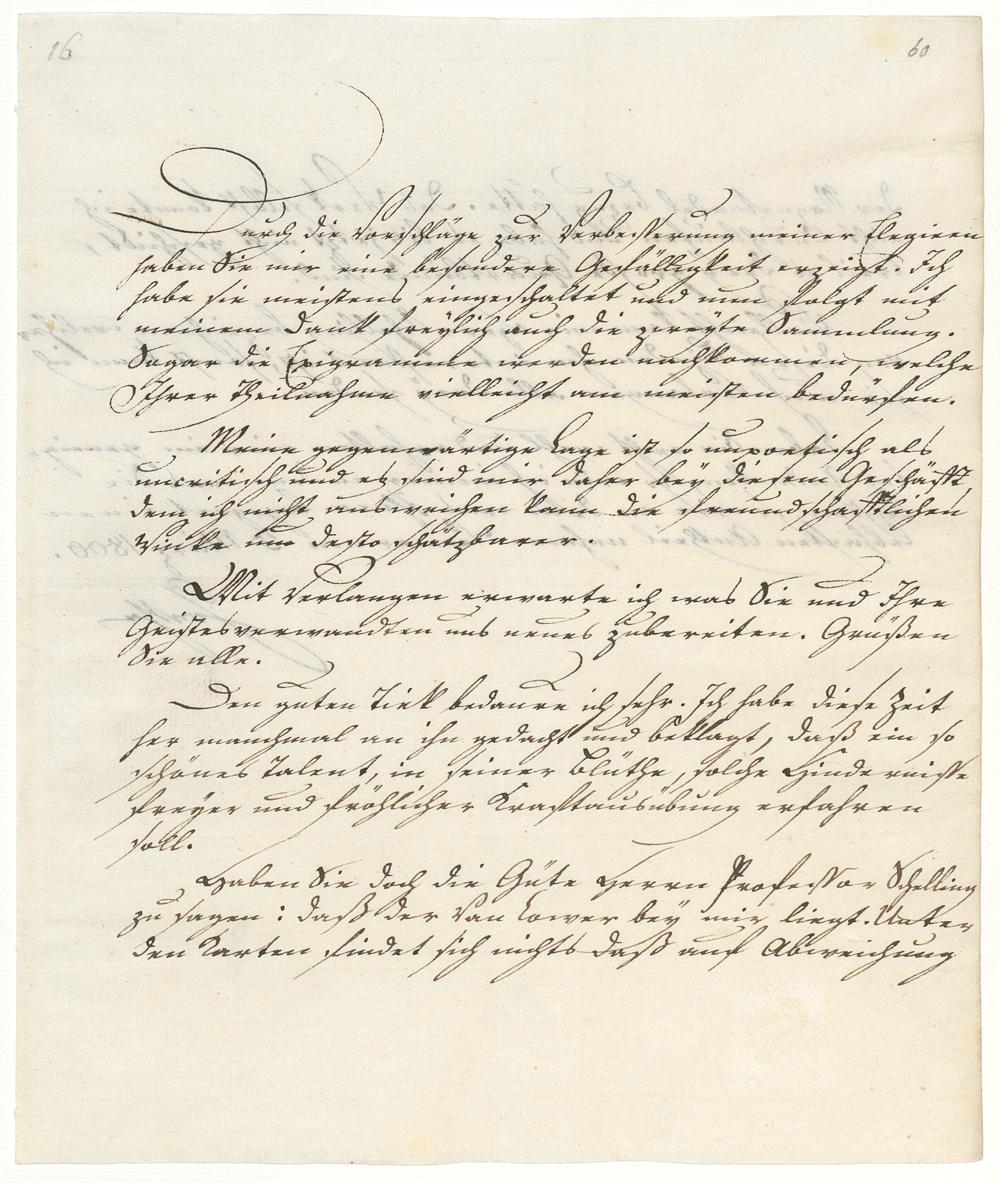 16
60
Durch die Vorschläge zur Verbesserung meiner Elegieen
haben Sie mir eine besondere Gefälligkeit erzeigt. Ich
habe sie meistens eingeschaltet und nun folgt mit
meinem Dank freylich auch die zweyte Sammlung.
Sogar die Epigramme werden nachkommen, welche
Ihrer Theilnahme vielleicht am meisten bedürfen.
Meine gegenwärtige Lage ist so unpoetisch als
uncritisch und es sind mir daher bey diesem Geschäfft,
dem ich nicht ausweichen kann die freundschafftlichen
Winke um desto schätzbarer.
Mit Verlangen erwarte ich was Sie und Ihre
Geistesverwandten uns neues zubereiten. Grüßen
Sie alle.
Den guten Tiek bedaure ich sehr. Ich habe diese Zeit
her manchmal an ihn gedacht und beklagt, daß ein so
schönes Talent, in seiner Blüthe, solche Hindernisse
freyer und fröhlicher Kraftausübung erfahren
soll.
Haben Sie doch die Güte Herrn Professor Schelling
zu sagen: daß der van Lower bey mir liegt. Unter
den Karten findet sich nichts daß auf Abweichung